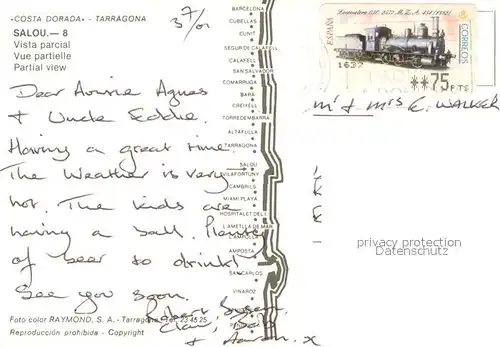 «COSTA DORADA» - TARRAGONA
SALOU.— 8
Vista parcial
Vue partielle
Partial view
3/7/01
Dear Auntie Agnes
& Uncle Eddie.
Having a great time.
The Weather is very
hot. The kids are
having a ball. Plenty
of beer to drink!
See you soon.
Robert, Susan,
Clair,
& Aaron. x
BARCELONA
CUBELLAS
CUNIT
SEGUR DE CALAFELL
CALAFELL
SAN SALVADOR
COMARRUGA
BARA
CREIXELL
TORREDEMBARRA
ALTAFULLA
TARRAGONA
SALOU
VILAFORTUNY
CAMBRILS
MIAMI PLAYA
HOSPITALET DEL I.
L'AMETLLA DE MAR
AMPOSTA
SAN CARLOS
VINAROZ
Foto color RAYMOND, S. A. - Tarragona - Tel. 23 45 25
Reproducción prohibida - Copyright
ESPAÑA
CORREOS
1637
**75 PTS
Mr & Mrs E. WALKER
privacy protection
Datenschutz